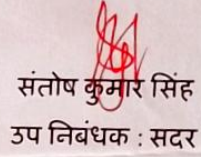 संतोष कुमार सिंह
उप निबंधक : सदर